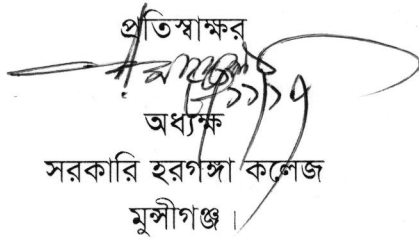 প্রতিস্বাক্ষর
অধ্যক্ষ
সরকারি হরগঙ্গা কলেজ
মুন্সীগঞ্জ।